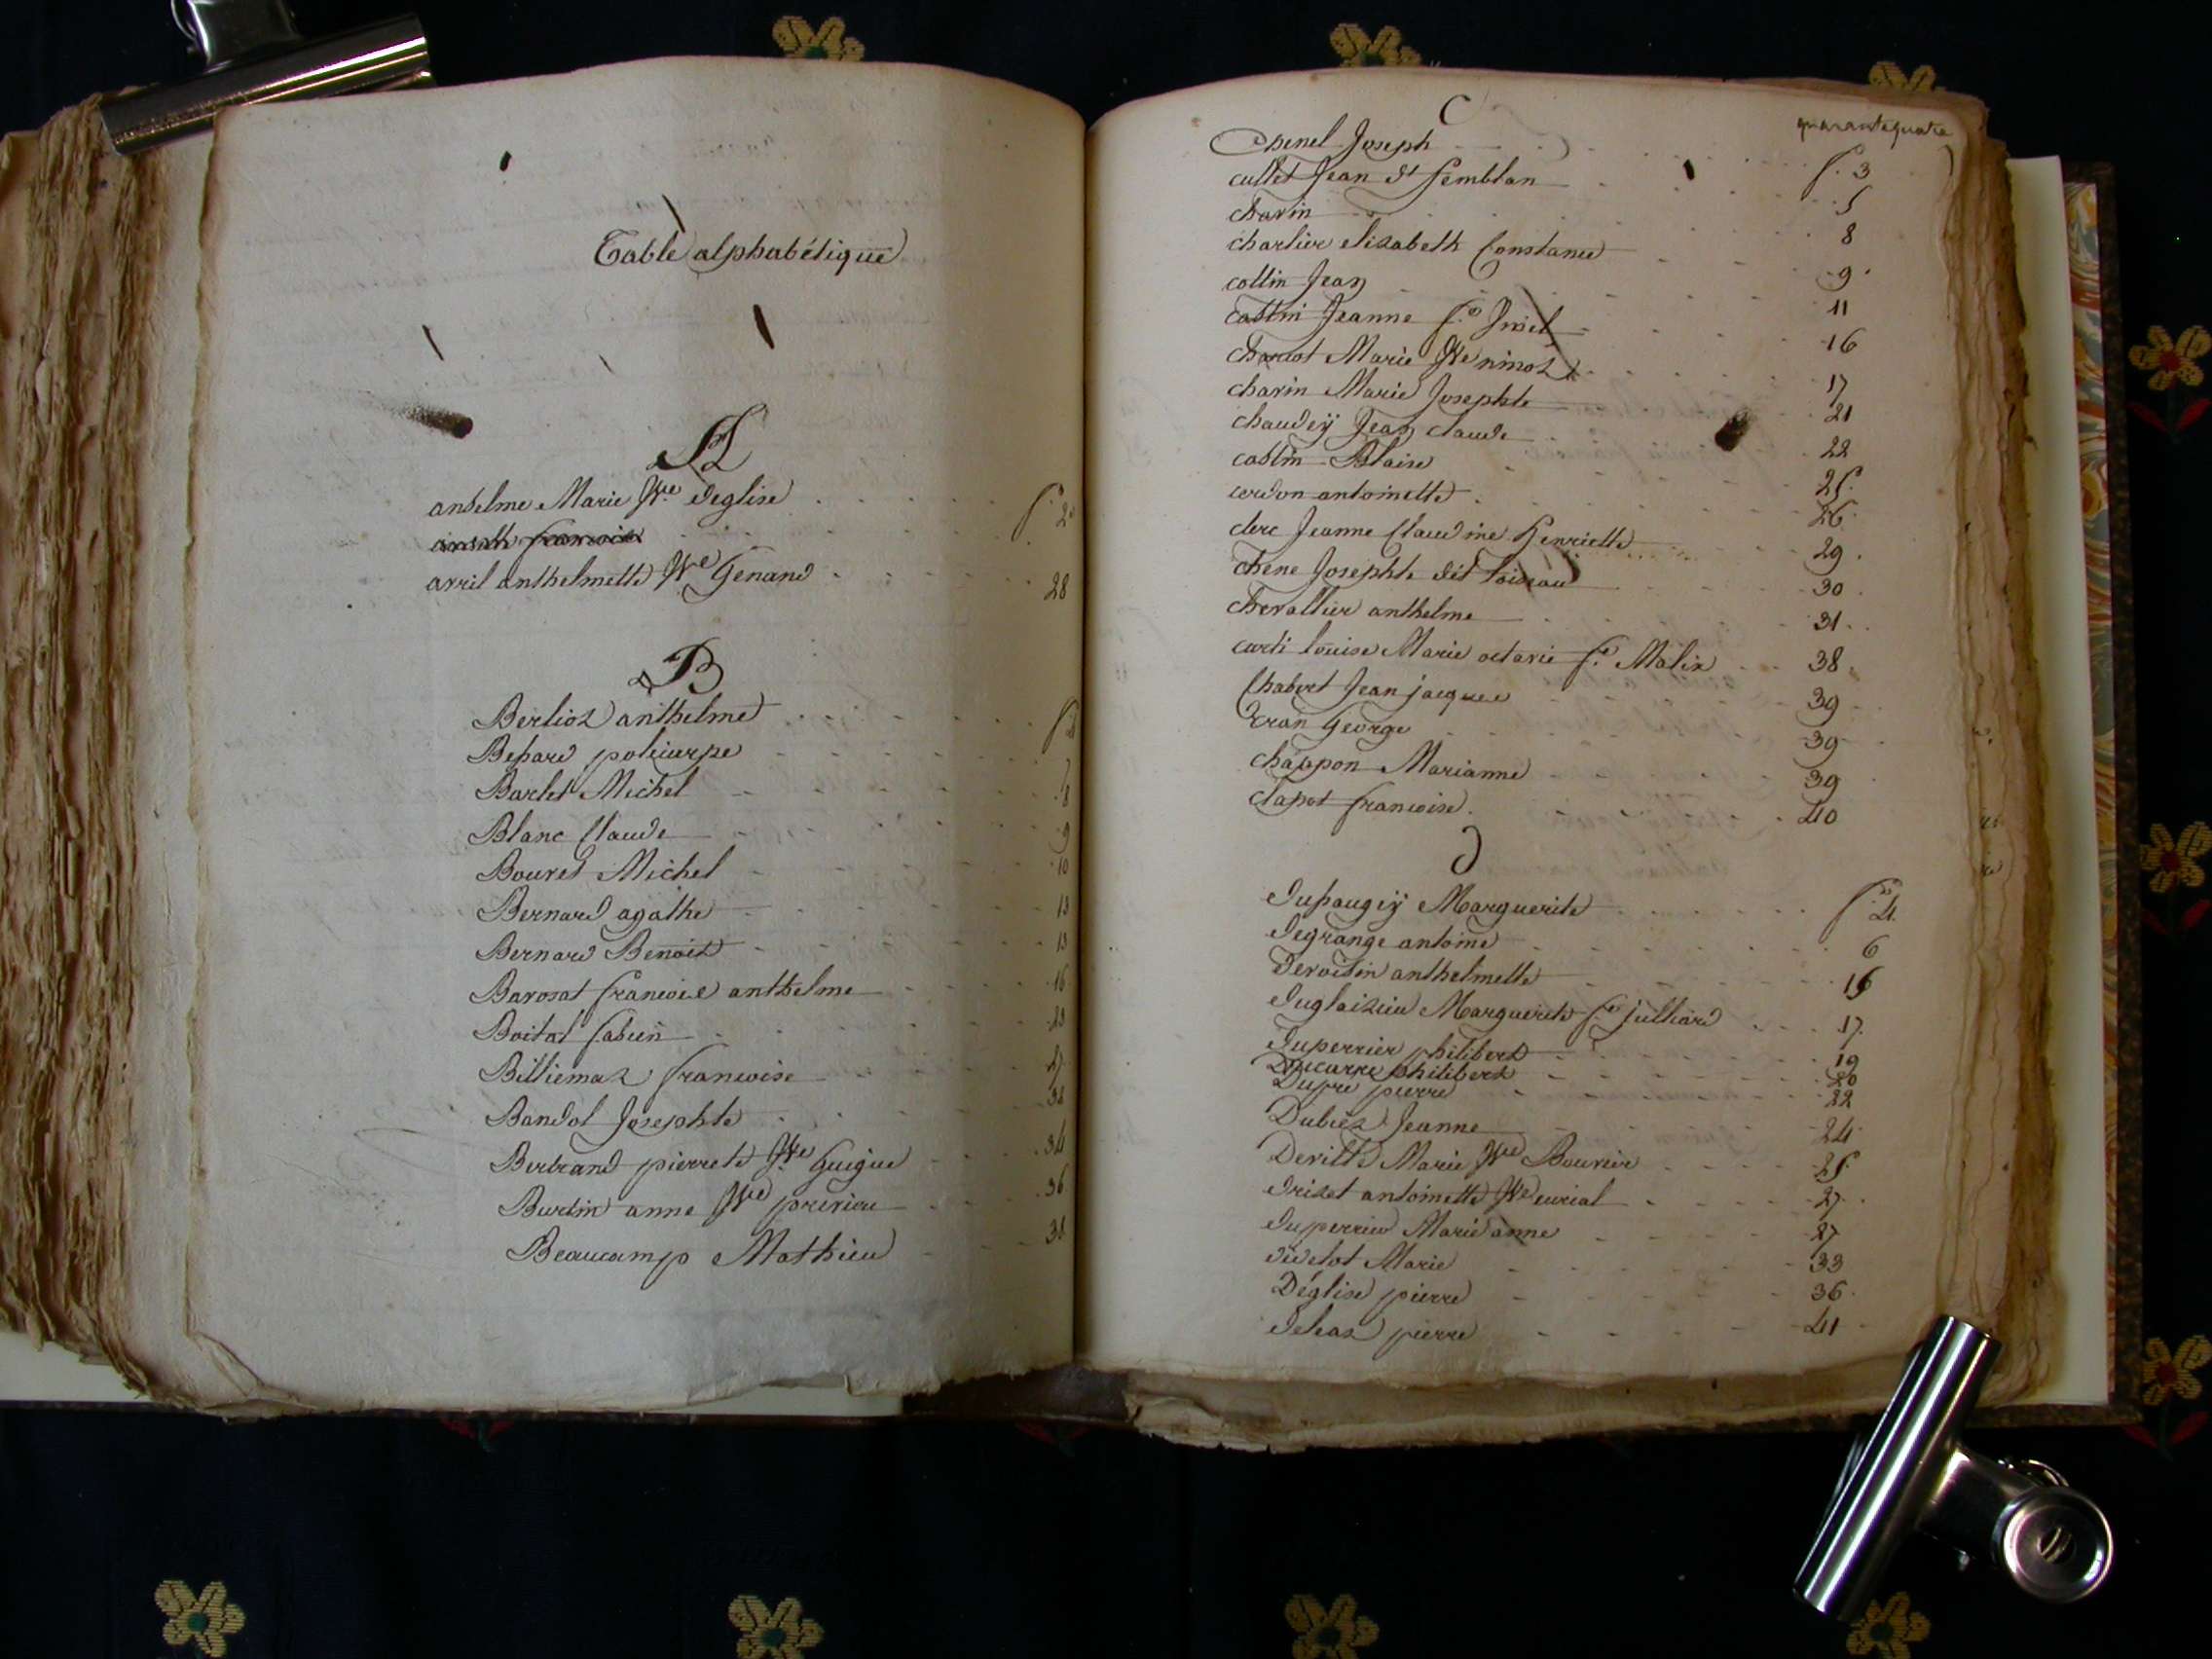 Table alphabétique
A
anselme Marie Vve deglise f. 2
avril anthelmette Vve Genand 28
B
Berlioz anthelme f.
Behard policarpe 7
Barlet Michel 8
Blanc Claude 9
Bouret Michel 10
Bernard agathe 13
Bernard Benoit 13
Barosat francois anthelme 16
Boital fabien 23
Billiemaz francoise 27
Bandol Josephte
Bertrand pierrete Vve Guigue 34
Burtin anne Vve prévieu 36
Beaucamp Mathieu 38
quarantequatre
C
Chenel Joseph f. 3
cullet Jean dt Semblan 5
charin 8
charlier elizabeth Constance 9
collin Jean 11
costin Jeanne fe 16
Marie Vve ninoz 17
charin Marie Josephte 21
chaudeÿ Jean claude 22
costin Blaise 25
cerdon antoinette 26
clerc Jeanne Claudine henriette 29
chêne Josephte dit loiseau 30
chevallier anthelme 31
curti loüise Marie octavie fe Malix 38
Chabert Jean jacques 39
cran George 39
chappon Marianne 39
clapot francoise 40
D
duhaugeÿ Marguerite fo 4
degrange antoine 6
devoisin anthelmette 16
duglaizieu Marguerite fe julliard 17
duperrier philibert 19
Ducarre philibert 20
Dupre pierre 22
Dubiez Jeanne 24
Deville Marie Vve Bouvier 25
drizet antoinette Vve curial 27
duperrieu Marie anne 27
didelot Marie 33
Déglise pierre 36
deleaz pierre 41